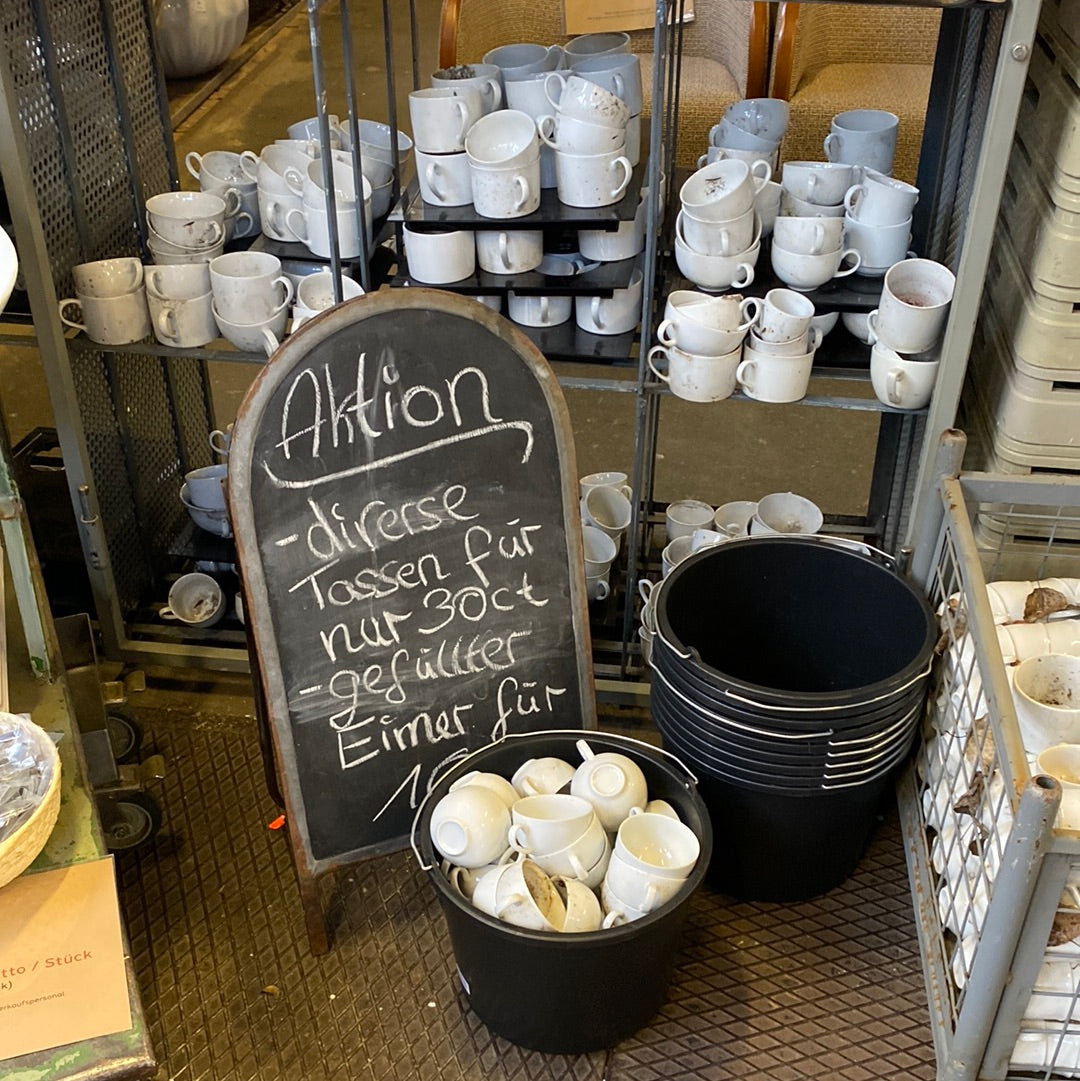 Aktion
-diverse
Tassen für
nur 30ct
-gefüllter
Eimer für
tto / Stück
k)
erkaufspersonal